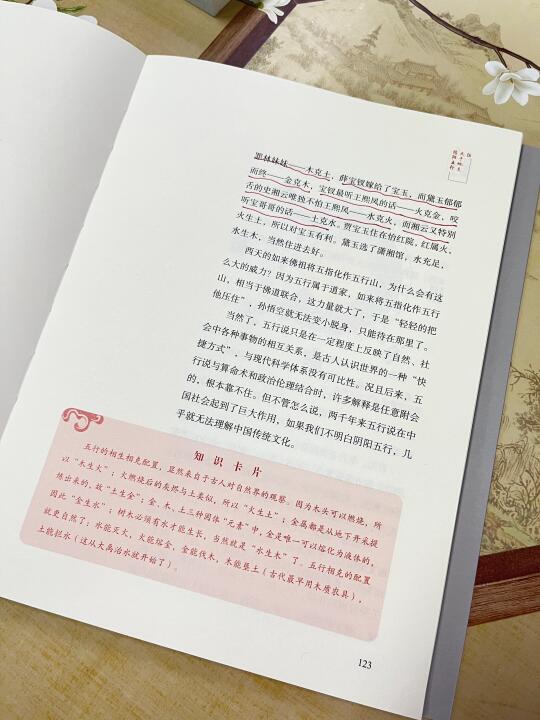 罪林妹妹——木克土，薛宝钗嫁给了宝玉，而黛玉郁郁
而终——金克木，宝钗最听王熙凤的话——火克金，咬
舌的史湘云唯独不怕王熙凤——水克火，而湘云又特别
听宝哥哥的话——土克水。贾宝玉住在怡红院，红属火，
火生土，所以对宝玉有利。黛玉选了潇湘馆，水充足，
水生木，当然住进去好。
西天的如来佛祖将五指化作五行山，为什么会有这
么大的威力？因为五行属于道家，如来将五指化作五行
山，相当于佛道联合，这力量就大了，于是“轻轻的把
他压住”，孙悟空就无法变小脱身，只能待在那里了。
当然了，五行说只是在一定程度上反映了自然、社
会中各种事物的相互关系，是古人认识世界的一种“快
捷方式”，与现代科学体系没有可比性。况且后来，五
行说与算命术和政治伦理结合时，许多解释是任意附会
的，根本靠不住。但不管怎么说，两千年来五行说在中
国社会起到了巨大作用，如果我们不明白阴阳五行，几
乎就无法理解中国传统文化。
知识卡片
五行的相生相克配置，显然来自于古人对自然界的观察。因为木头可以燃烧，所
以“木生火”；火燃烧后的灰烬与土类似，所以“火生土”；金属都是从地下开采提
炼出来的，故“土生金”；金、木、土三种固体“元素”中，金是唯一可以熔化为液体的，
因此“金生水”；树木必须有水才能生长，当然就是“水生木”了。五行相克的配置
就更自然了：水能灭火，火能熔金，金能伐木，木能垦土（古代最早用木质农具），
土能拦水（这从大禹治水就开始了）。
123